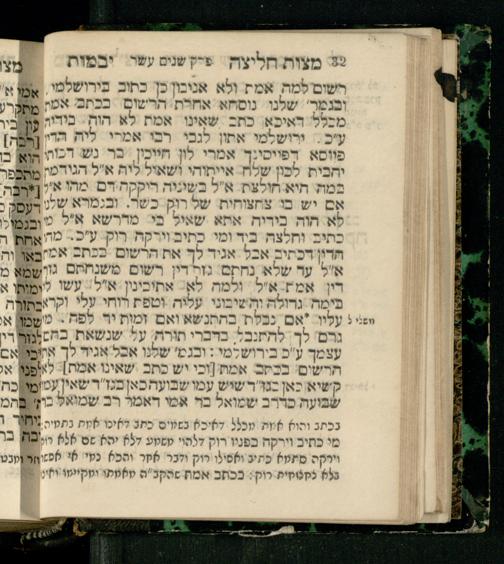 32 מצות חליצה פרק שנים עשר יבמות
רשום למה אמת ולא אניכון כן כתוב בירושלמי.
ובגמר׳ שלנו נוסחא אחרת הרשום בכתב אמת
מכלל דאיכא כתב שאינו אמת לא הוה בידיה
ע״כ. ירושלמי אתון לגבי רבי אמרי ליה הדין
פווסא דפייסינך אמרי לון חייכון בר נש דכותי
יהבית לכון שלח אייתוהי ושאיל ליה א״ל הגידמת
במה היא חולצת א״ל בשיניה רקקה דם מהו א״ל
אם יש בו צחצוחית של רוק כשר. ובגמרא שלנו
לא הוה בידיה אתא שאיל בי מדרשא א״ל מי
כתיב וחלצה ביד ומי כתיב וירקה רוק ע״כ.
הדין דכתיב אבל אגיד לך את הרשום בכתב אמת
א״ל עד שלא נחתם גזר דין רשום משנחתם גזר
דין אמת א״ל ולמה לא אתיבינון א״ל עשו לי
בימה גדולה והושיבוני עליה וטפת רוחי עלי וקרא
עליו *אם נבלת בהתנשא ואם זמות יד לפה. מי
משלי ל
גרם לך להתנבל בדברי תורה על שנשאת בהם
עצמך ע״כ בירושלמי: ובגמ׳ שלנו אבל אגיד לך את
הרשום בכתב אמת [וכי יש כתב שאינו אמת] לא
קשיא כאן בגז״ד שיש עמו שבועה כאן בגז״ד שאין עמו
שבועה כדרב שמואל בר אמי דאמר רב שמואל בר
בכתב והוא אמת מכלל דאיכא בשמים כתב דאינו אמת בתמיה:
מי כתיב וירקה בפניו רוק דלהוי משמע דלא יהא שם אלא רוק
וירקה סתמא כתיב ואפילו רוק ודבר אחר והכא נמי אי אפשר
בלא צחצוחית רוק: בכתב אמת שהקב״ה מאמתו ומקיימו ואינו